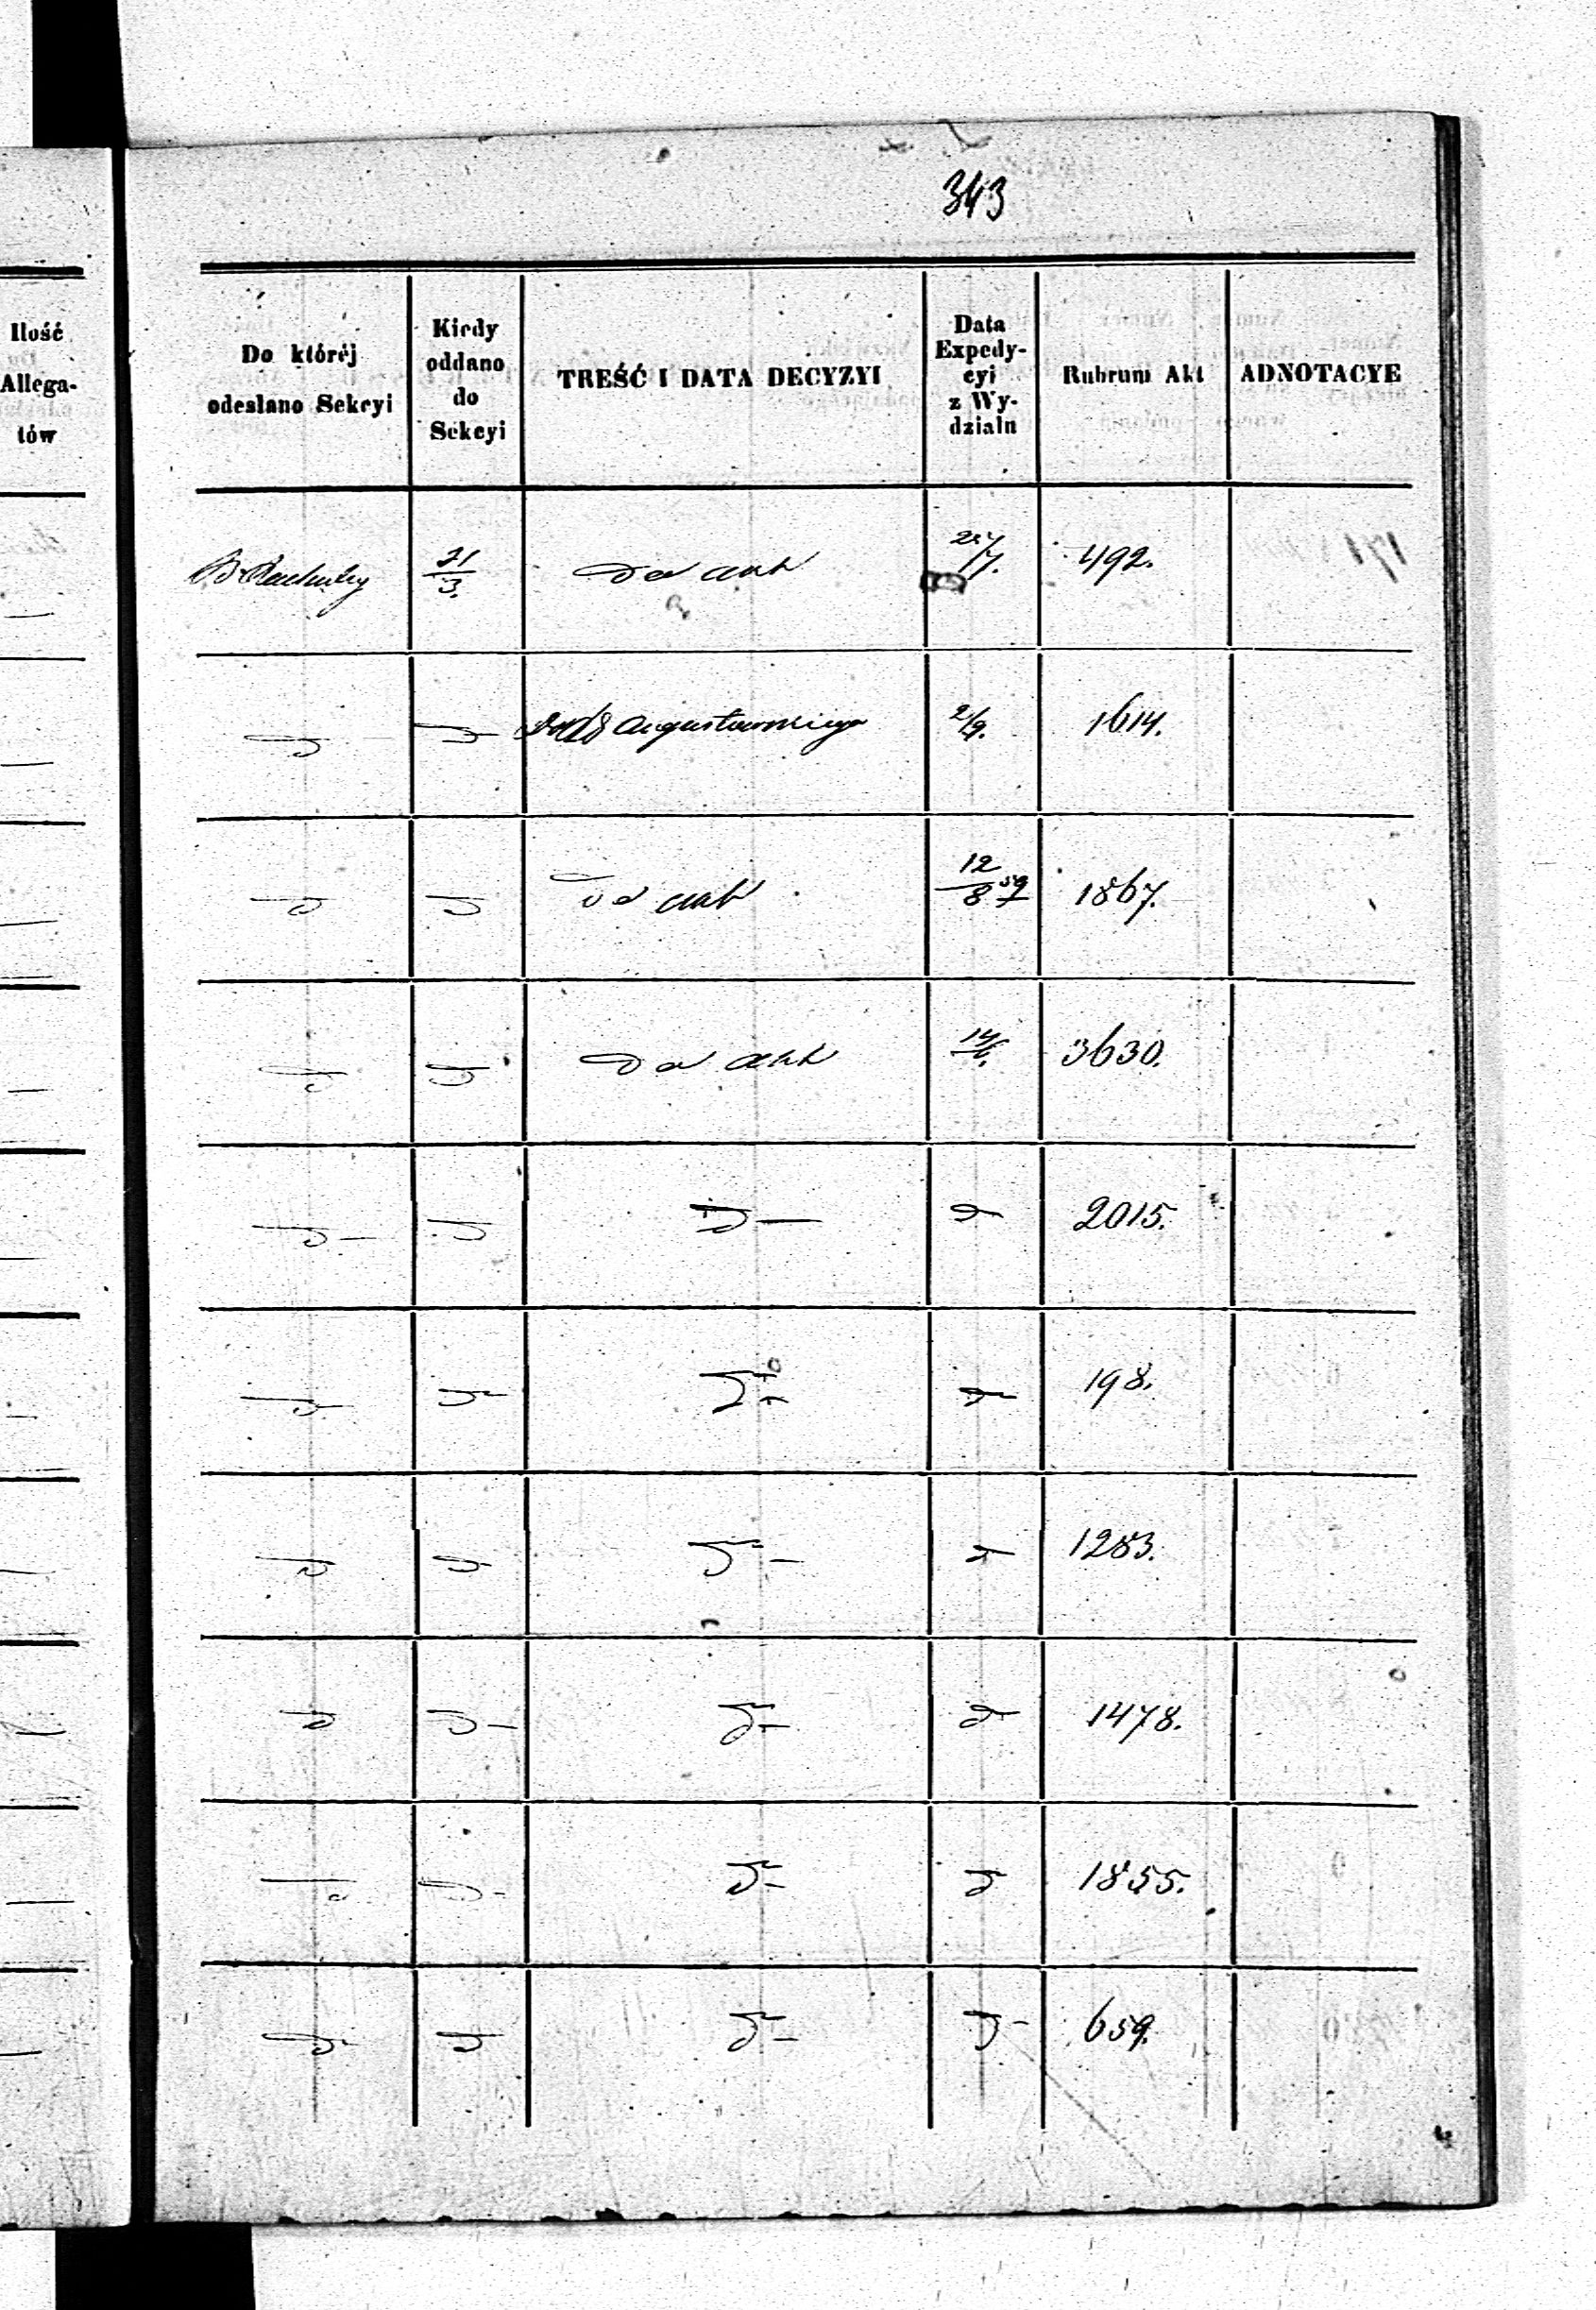 343
Ilość
Allega-
tów
Do któréj
odesłano Sekcyi
Kiedy
oddano
do
Sekcyi
TREŚĆ I DATA DECYZYI
Data
Expedy-
cyi
z Wy-
działu
Rubrum Akt
ADNOTACYE
31/3. Do akt 492.
Augustowskiego 2/9. 1614.
Do akt 12/8 59 1867.
Do akt 14/6. 3630.
2015.
198.
1283.
1478.
1855.
659.